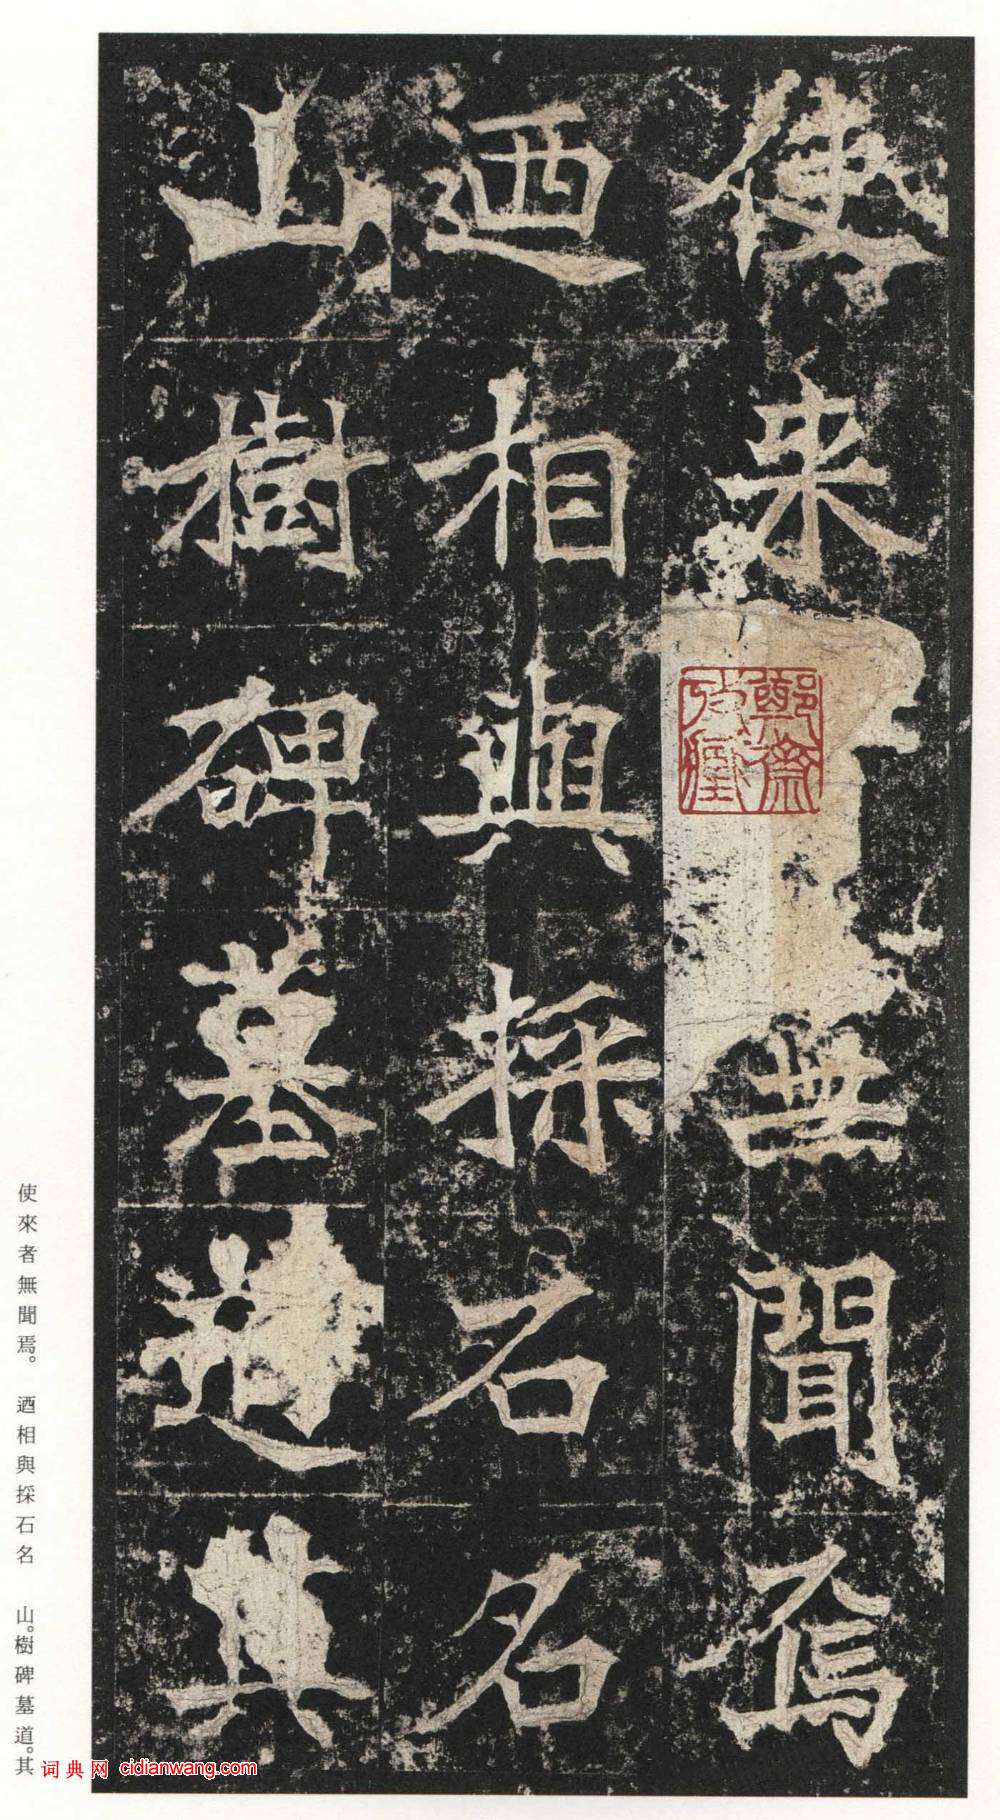 使來無聞焉
迺相與採石名
山樹碑墓道其
使來者無聞焉。 迺相與採石名 山。樹碑墓道。其
词典网 cidianwang.com